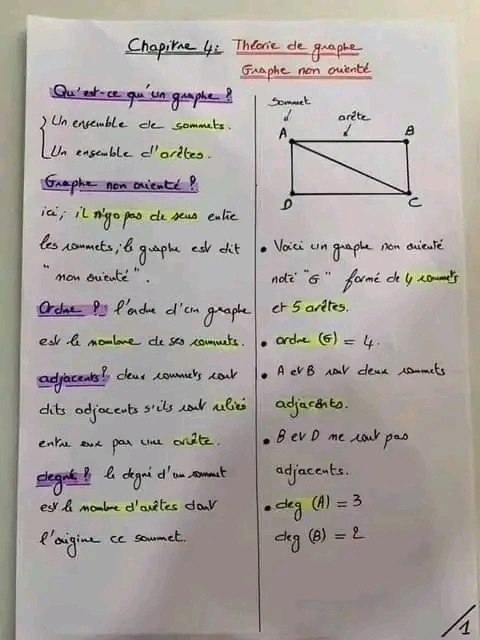 Chapitre 4: Théorie de graphe
Graphe non orienté
Qu'est-ce qu'un graphe ?
Un ensemble de sommets.
Un ensemble d'arêtes.
Graphe non orienté ?
ici, il n'y a pas de sens entre
les sommets, le graphe est dit
"non orienté".
Ordre ? l'ordre d'un graphe
est le nombre de ses sommets.
adjacents ? deux sommets sont
dits adjacents s'ils sont reliés
entre eux par une arête.
degré ? le degré d'un sommet
est le nombre d'arêtes dont
l'origine ce sommet.
sommet
arête
A
B
D
C
• Voici un graphe non orienté
noté "G" formé de 4 sommets
et 5 arêtes.
• ordre (G) = 4.
• A et B sont deux sommets
adjacents.
• B et D ne sont pas
adjacents.
• deg (A) = 3
deg (B) = 2
/1